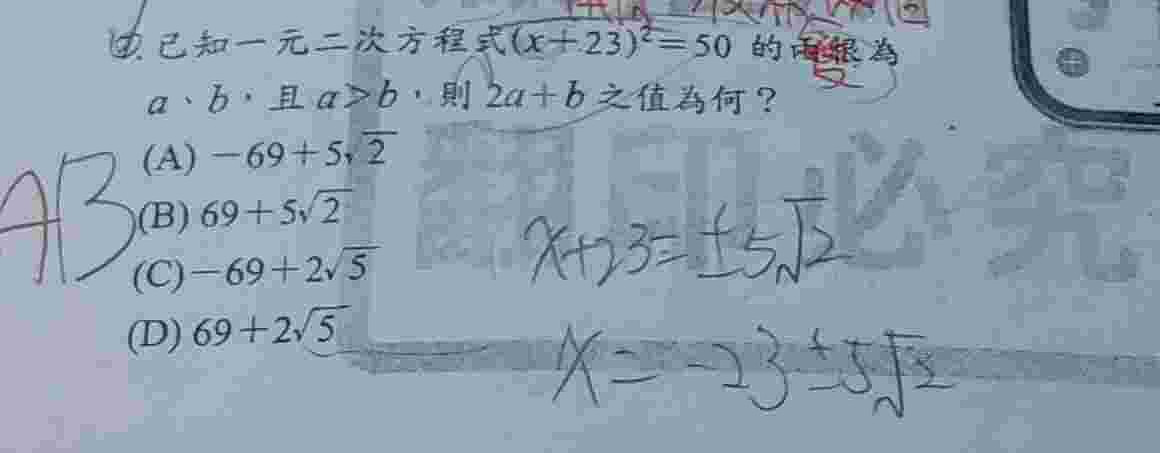 已知一元二次方程式(x+23)²=50 的兩根為
a、b，且 a>b，則 2a+b 之值為何？
(A) −69+5√2
(B) 69+5√2
(C) −69+2√5
(D) 69+2√5
AB
x+23=±5√2
x=-23±5√2
翻印必究